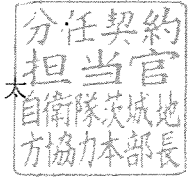 分任契約
担当官
太
自衛隊茨城地
方協力本部長